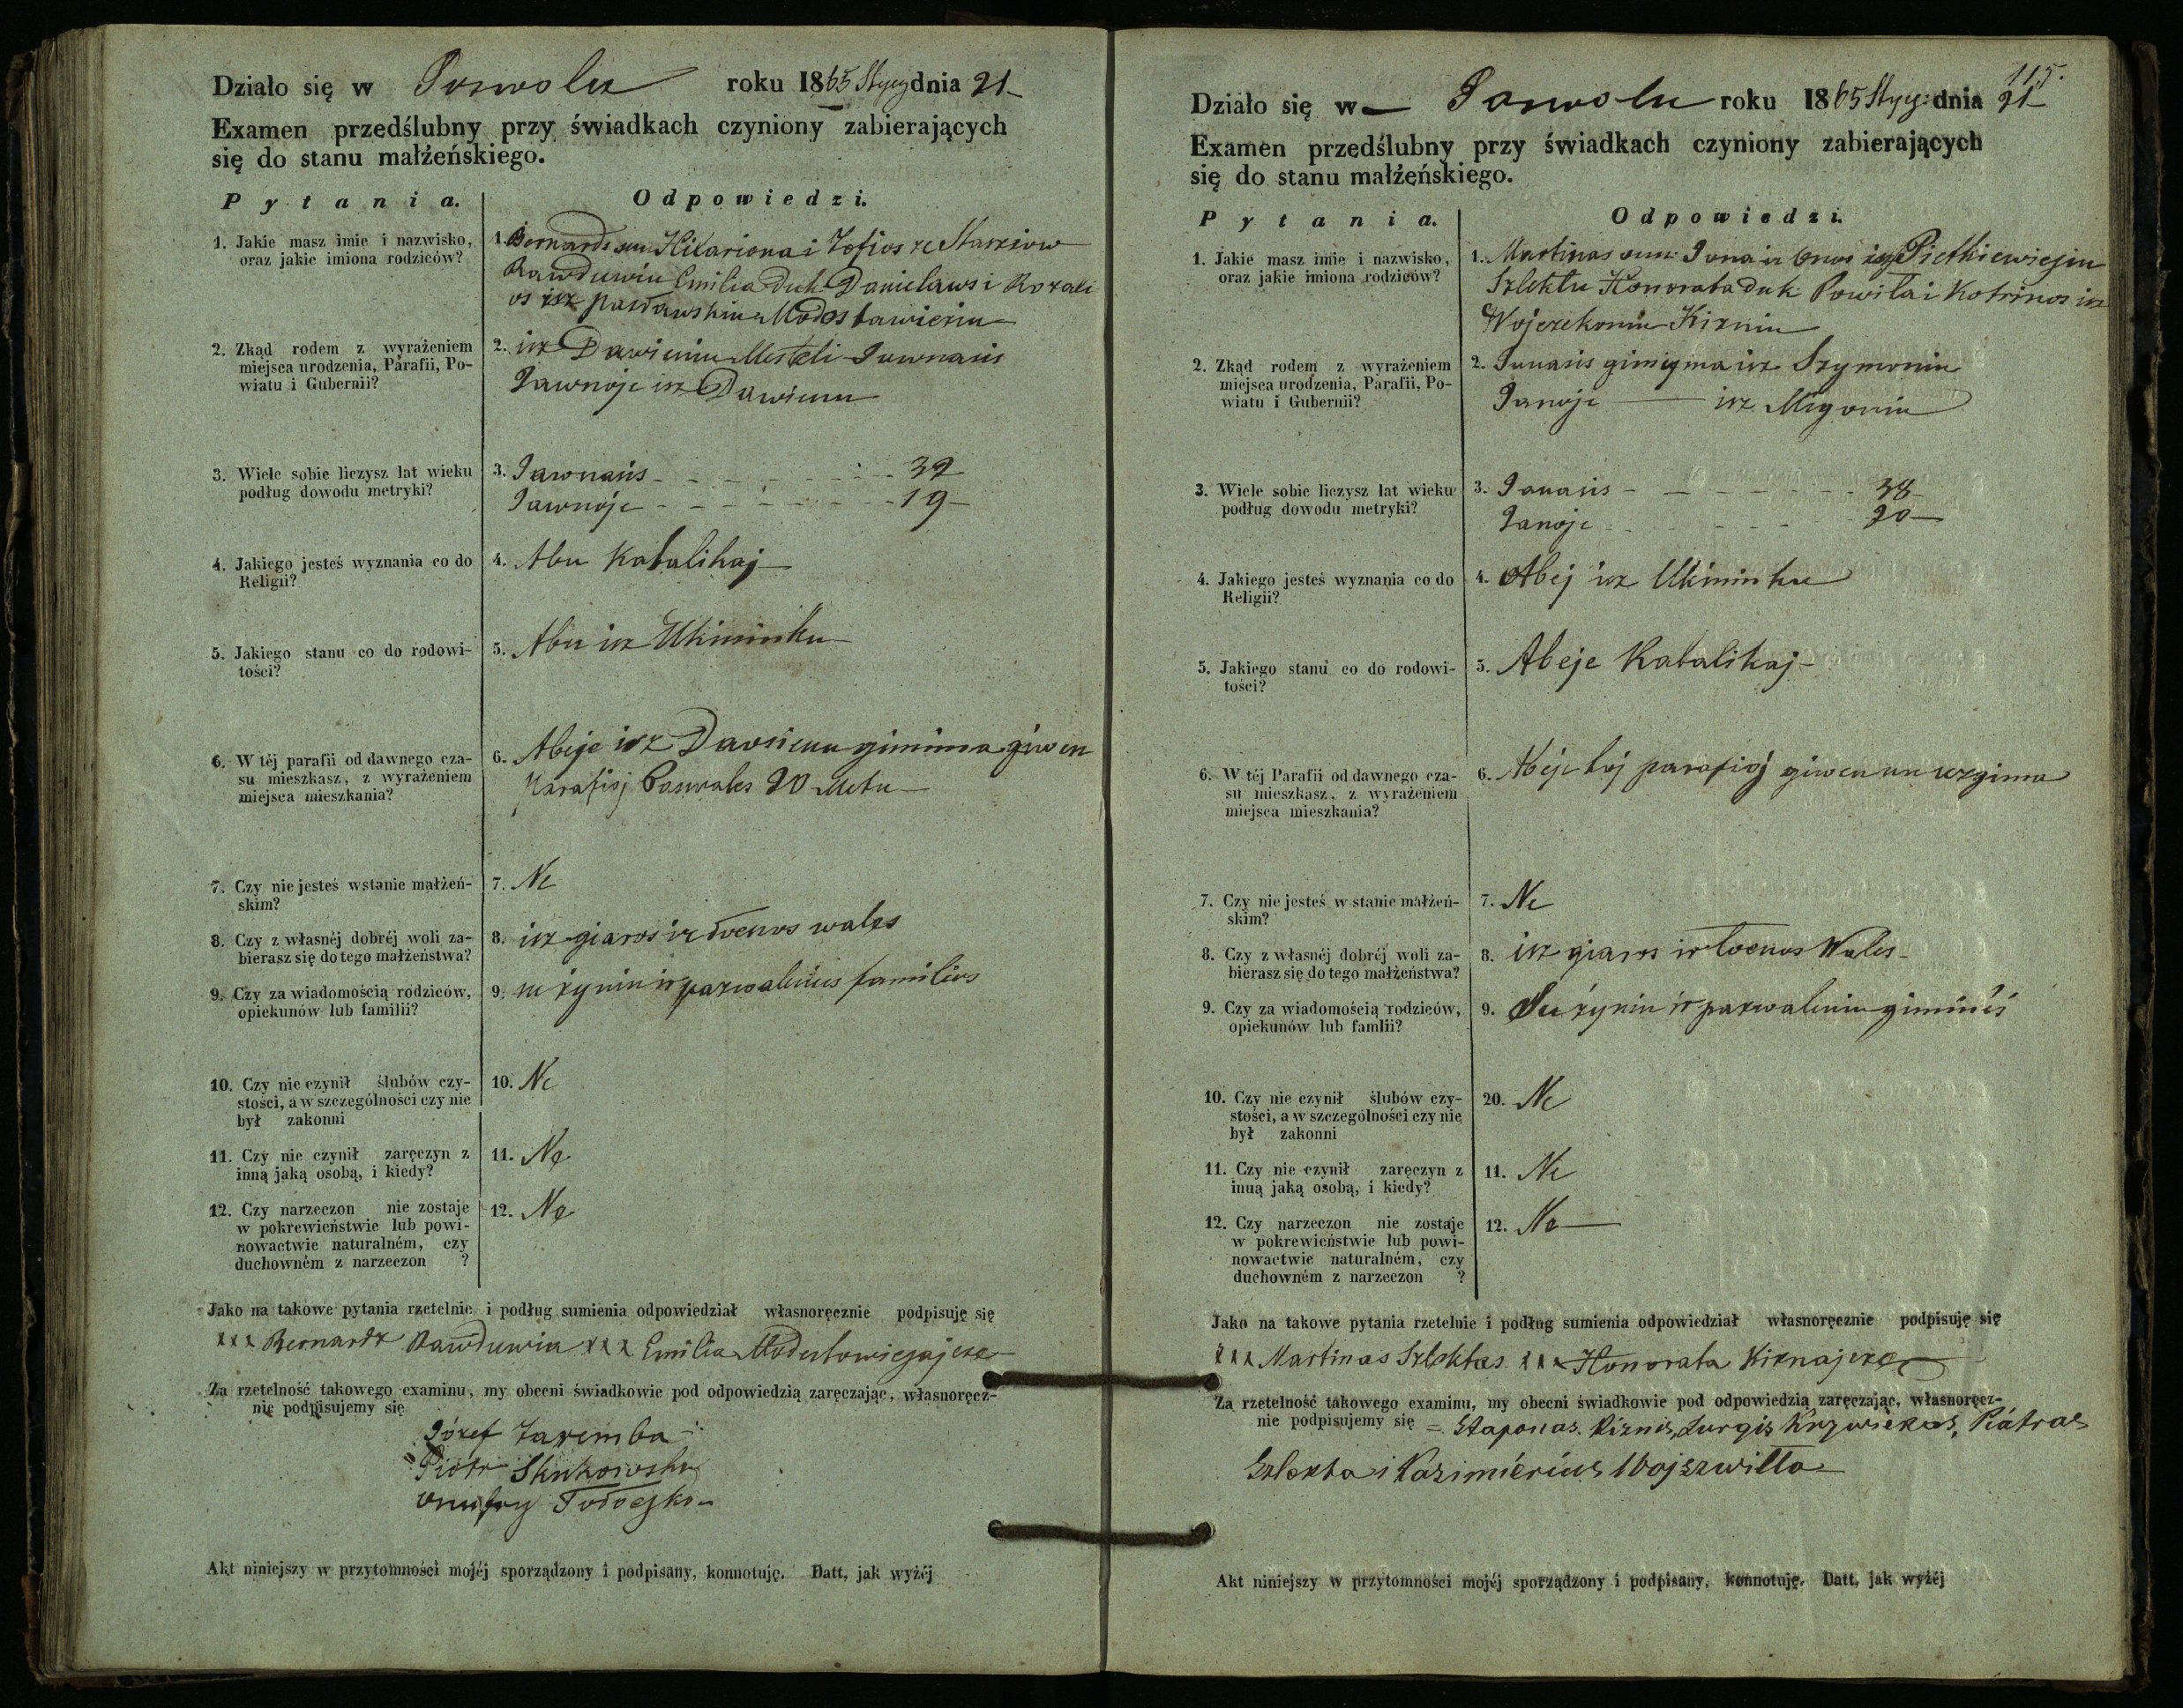 Działo się w Poswolu roku 1865 Stycz dnia 21
Examen przedślubny przy świadkach czyniony zabierających
się do stanu małżeńskiego.
Pytania. Odpowiedzi.
1. Jakie masz imie i nazwisko,
oraz jakie imiona rodziców?
1. Bernards sun Hilariona i Zofios ze
Rawduwiu Emilia Duk Danielaws i Rozali
os isz
2. Zkąd rodem z wyrażeniem
miejsca urodzenia, Parafii, Po-
wiatu i Gubernii?
2. isz Dawieniu Mesteli Jawnasis
Jawnoje isz Dawienu
3. Wiele sobie liczysz lat wieku
podług dowodu metryki?
3. Jawnasis 32
Jawnoje 19
4. Jakiego jesteś wyznania co do
Religii?
4. Abu Katalikaj
5. Jakiego stanu co do rodowi-
tości?
5. Abu isz Ukininku
6. W téj parafii od dawnego cza-
su mieszkasz, z wyrażeniem
miejsca mieszkania?
6. Abeje isz Dawienu gimima giwen
Parafioj Paswales 20 Metu
7. Czy nie jesteś w stanie małżeń-
skim?
7. Ne
8. Czy z własnéj dobréj woli za-
bierasz się do tego małżeństwa?
8. isz giaros ir locnos wales
9. Czy za wiadomością rodziców,
opiekunów lub familii?
9. su żyniu ir pazwalenius familios
10. Czy nie czynił ślubów czy-
stości, a w szczególności czy nie
był zakonni
10. Ne
11. Czy nie czynił zaręczyn z
inną jaką osobą, i kiedy?
11. Ne
12. Czy narzeczon nie zostaje
w pokrewieństwie lub powi-
nowactwie naturalném, czy
duchowném z narzeczon ?
12. Ne
Jako na takowe pytania rzetelnie i podług sumienia odpowiedział własnoręcznie podpisuję się
xxx Bernardz Rawduwia xxx Emilia
Za rzetelność takowego examinu, my obecni świadkowie pod odpowiedzią zaręczając, własnoręcz-
nie podpisujemy się
Józef Zaremba
Piotr
Onufry
Akt niniejszy w przytomności mojéj sporządzony i podpisany, konnotuję. Datt, jak wyżéj
115.
Działo się w Poswolu roku 1865 Stycz: dnia 21
Examen przedślubny przy świadkach czyniony zabierających
się do stanu małżeńskiego.
Pytania. Odpowiedzi.
1. Jakie masz imie i nazwisko,
oraz jakie imiona rodziców?
1. Martinas sun: Jona ir Pietkiewicziu
Szlektu Honorata duk: Powiła i Kotrinos isz
Wojczekoniu Kizniu
2. Zkąd rodem z wyrażeniem
miejsca urodzenia, Parafii, Po-
wiatu i Gubernii?
2. Junasis gimima isz Szymoniu
Janoje isz Migoniu
3. Wiele sobie liczysz lat wieku
podług dowodu metryki?
3. Janasis 38
Janoje 20
4. Jakiego jesteś wyznania co do
Religii?
4. Abej isz Ukininku
5. Jakiego stanu co do rodowi-
tości?
5. Abeje Katalikaj
6. W téj Parafii od dawnego cza-
su mieszkasz, z wyrażeniem
miejsca mieszkania?
6. Abeje toj parafioj giwena nu uzgima
7. Czy nie jesteś w stanie małżeń-
skim?
7. Ne
8. Czy z własnéj dobréj woli za-
bierasz się do tego małżeństwa?
8. isz giaros ir locnos Wales
9. Czy za wiadomością rodziców,
opiekunów lub famlii?
9. Su żyniu ir pazwaleniu giminés
10. Czy nie czynił ślubów czy-
stości, a w szczególności czy nie
był zakonni
20. Ne
11. Czy nie czynił zaręczyn z
inuą jaką osobą, i kiedy?
11. Ne
12. Czy narzeczon nie zostaje
w pokrewieństwie lub powi-
nowactwie naturalném, czy
duchowném z narzeczon ?
12. Ne
Jako na takowe pytania rzetelnie i podług sumienia odpowiedział własnoręcznie podpisuję się
xxx Martinas Szlektas xxx Honorata Kiznajcze
Za rzetelność takowego examinu, my obecni świadkowie pod odpowiedzią zaręczając, własnoręcz-
nie podpisujemy się = Staponas Kiznis, Jurgis Krzywickas, Piatras
Szlekta i Kazimiérius Wojszwiłło
Akt niniejszy w przytomności mojéj sporządzony i podpisany, konnotuję. Datt, jak wyżéj